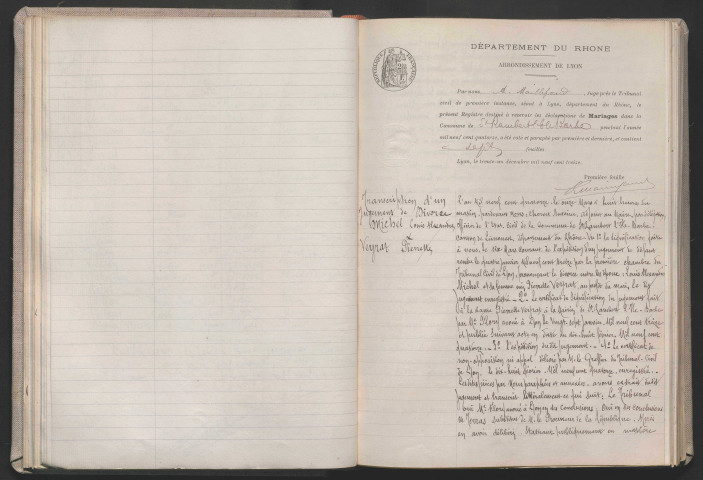 DÉPARTEMENT DU RHONE
ARRONDISSEMENT DE LYON
RÉPUBLIQUE FRANÇAISE
Par nous, M. Juge près le Tribunal
civil de première instance, séant à Lyon, département du Rhône, le
présent Registre destiné à recevoir les déclarations de Mariages dans la
Commune de St Rambert-l'Ile-Barbe pendant l'année
mil neuf cent quatorze, a été coté et paraphé par première et dernière, et contient
feuilles.
Lyon, le trente-un décembre mil neuf cent treize.
Première feuille
Transcription d'un
jugement de Divorce
Michel Louis Alexandre
&
Veyrat Pierrette
L'an mil neuf cent quatorze, le onze Mars à huit heures du
matin, par devant Nous,
officier de l'Etat Civil de la Commune de St Rambert l'Ile-Barbe
Canton de Limonest, département du Rhône 1º la signification faite
à nous, le dix Mars courant de l'expédition d'un jugement de défaut
rendu le quatre mil neuf cent treize par la première chambre du
Tribunal Civil de Lyon, prononçant le divorce entre les époux: Louis Alexandre
Michel et la femme née Pierrette Veyrat, au profit du mari,
jugement enregistré. 2º Le certificat de signification du jugement fait
à la dame Pierrette Veyrat à la Mairie de St Rambert l'Ile-Barbe
par Me avoué à Lyon le vingt sept janvier mil neuf cent
et publié suivant acte en date du dix-huit février mil neuf cent
quatorze. 3º L'expédition du dit jugement. 4º Le certificat de
non-opposition ni appel délivré par M. le Greffier du Tribunal Civil
de Lyon, le dix-huit février mil neuf cent quatorze, enregistré.
Lesquelles pièces par Nous paraphées et annexées, avons extrait dudit
jugement et transcrit littéralement ce qui suit: Le Tribunal
Ouï Me avoué à Lyon en ses conclusions; Ouï en ses conclusions
M. substitut de M. le Procureur de la République. Après
en avoir délibéré, statuant publiquement en matière